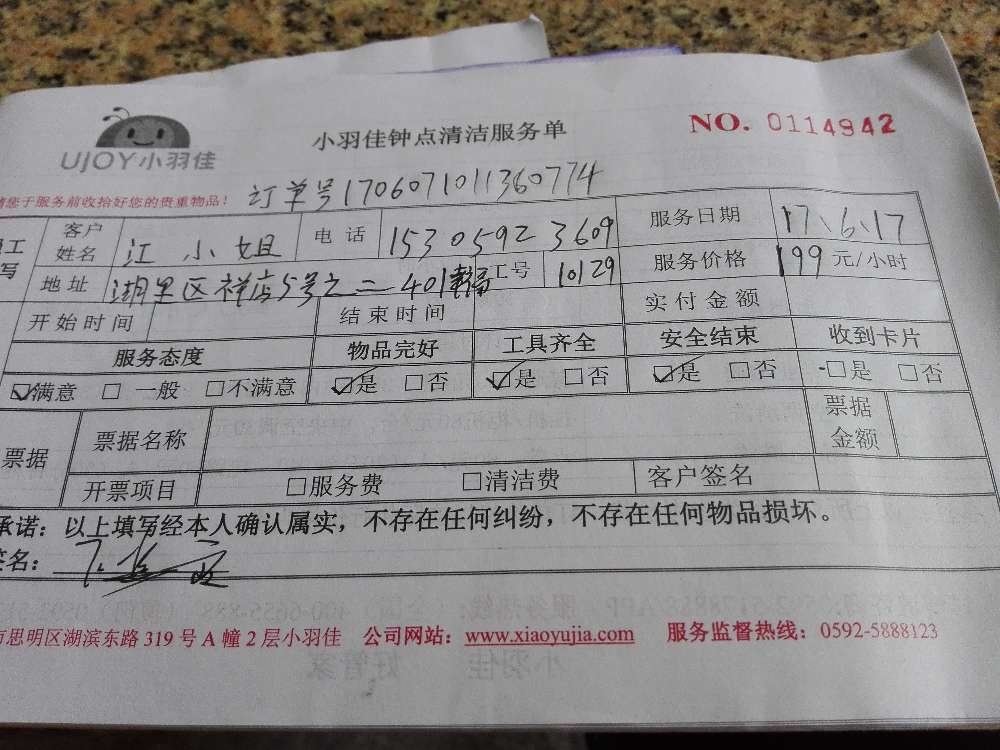 UJOY小羽佳
小羽佳钟点清洁服务单
NO. 0114942
请您于服务前收拾好您的贵重物品！
订单号1706071011360774
客户姓名 江小姐 电话 15305923609 服务日期 17、6、17
地址 湖里区祥店5号之二401 工号 10129 服务价格 199 元/小时
开始时间 结束时间 实付金额
服务态度 物品完好 工具齐全 安全结束 收到卡片
☑满意 □一般 □不满意 ☑是 □否 ☑是 □否 ☑是 □否 □是 □否
票据 票据名称 票据金额
开票项目 □服务费 □清洁费 客户签名
承诺：以上填写经本人确认属实，不存在任何纠纷，不存在任何物品损坏。
签名：
市思明区湖滨东路319号A幢2层小羽佳 公司网站：www.xiaoyujia.com 服务监督热线：0592-5888123